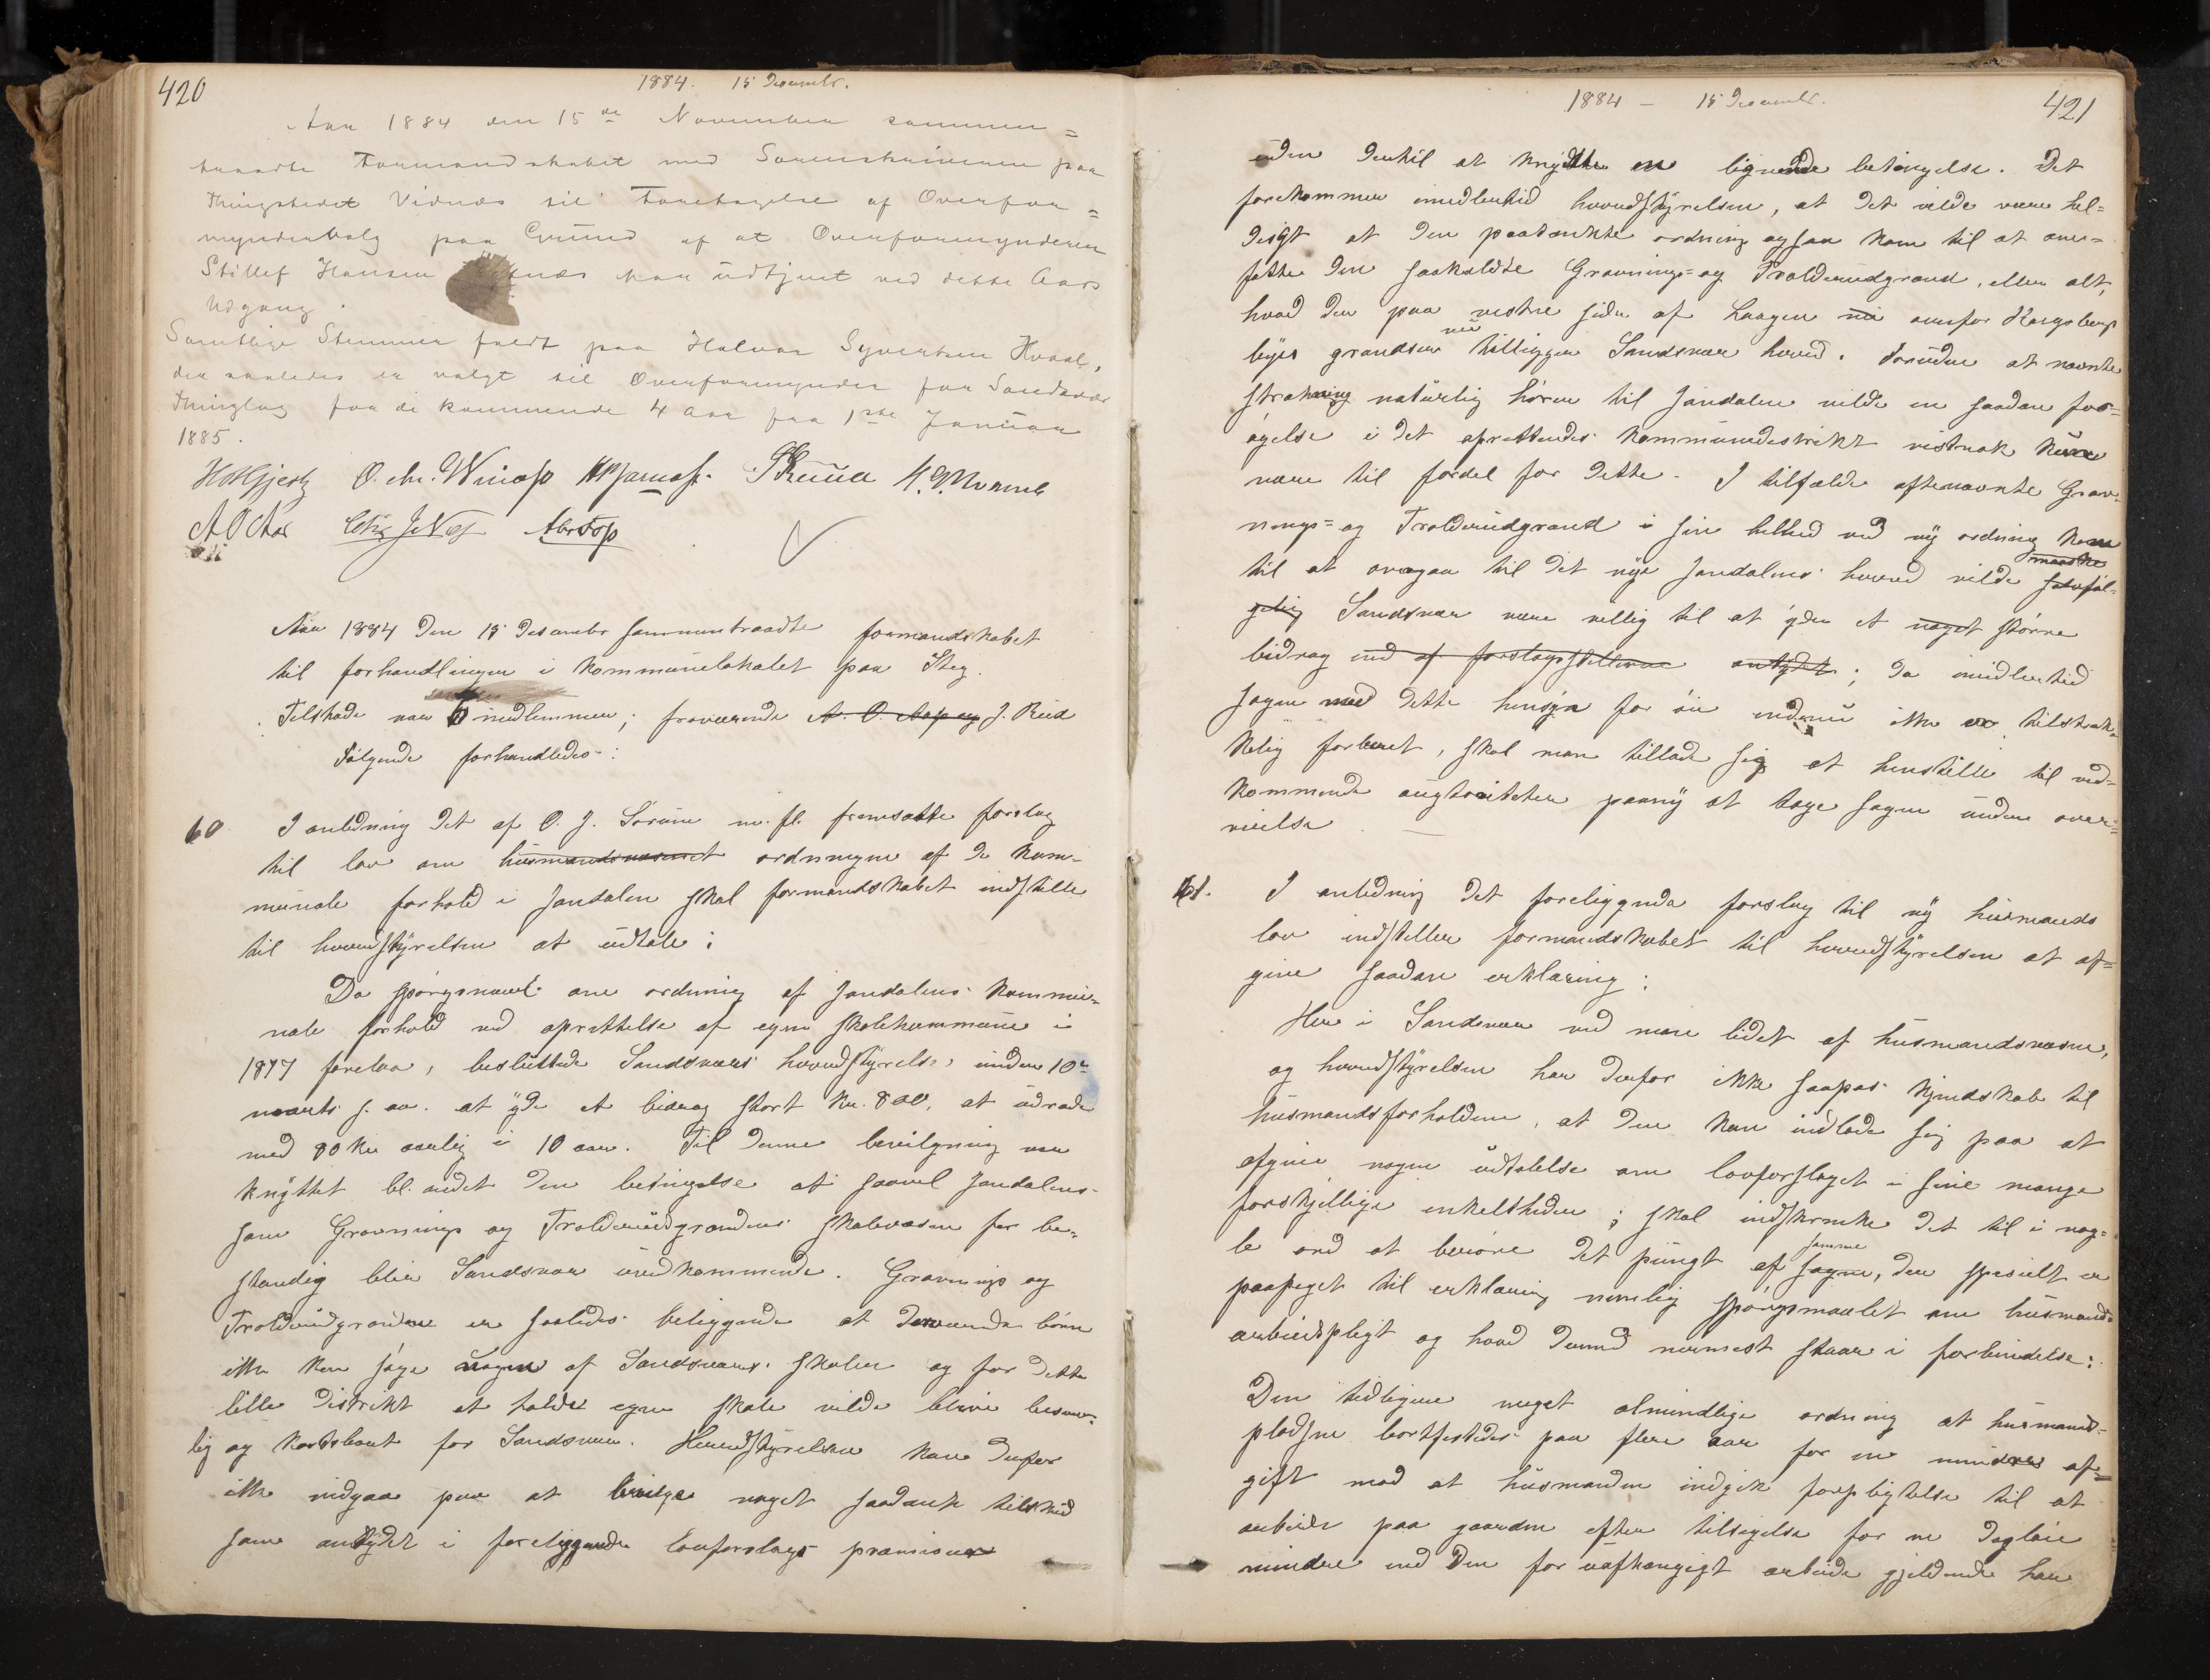 420
1884. 15 Decembr.
Aar 1884 den 15de November sammen=
traadte Formandskabet med Sorenskriveren paa
Thingstedet Vidnæs til Foretagelse af Overfor=
myndervalg paa Grund af at Overformynderen
Stillef Hansen har udtjent ved dette Aars
Udgang.
Samtlige Stemmer faldt paa Halvor Syvertsen Hvaal,
der saaledes er valgt til Overformynder for Sandsvær
Thinglag for de kommende 4 Aar fra 1ste Januar
1885.
Aar 1884 den 15 Desember sammentraadte formandskabet
til forhandlinger i Kommunelokalet paa Steg.
Tilstede var medlemmer; fraværende A. O. Aas og J. Rud
Følgende forhandledes:
60 I anledning det af O. J. Sørum m. fl. fremsatte forslag
til lov om husmandsvæsenet ordningen af de kom-
munale forhold i Jondalen skal formandskabet indstille
til herredsstyrelsen at udtale:
Da spørgsmaal om ordning af Jondalens kommu-
nale forhold ved oprettelse af egen skolekommune i
1877 forelaa, besluttede Sandsværs herredsstyrelse under 10de
marts s. aa. at yde et bidrag stort Kr. 800, at udrede
med 80 Kr aarlig i 10 aar. Til denne bevilgning var
knyttet bl. andet den betingelse at saavel Jondalens
som Gravnings og Trolderudgrændens skolevæsen for be-
standig blev Sandsvær uvedkommende. Gravnings og
Trolderudgrænden er saaledes beliggende at derværende børn
ikke kan søge nogen af Sandsværs skoler og for dette
lille distrikt at holde egen skole vilde blive besvær-
lig og kostbart for Sandsvær. Herredsstyrelsen kan derfor
ikke indgaa paa at bevilge noget saadant tilskud
som antydet i foreliggende lovforslags præmisser
1884 - 15 Decembr. 421
uden dertil at knytte en lignende betingelse. Det
forekommer imidlertid herredsstyrelsen, at det vilde være hel=
digst at den paatænkte ordning ogsaa kom til at om=
fatte den saakaldte Gravnings= og Trolderudgrænd, eller alt,
hvad der paa vestre side af Laagen nu ovenfor Kongsberg
nu
byes grændser tilligger Sandsvær herred. Foruden at nævnte
strækning naturlig hører til Jondalen vilde en saadan for=
øgelse i det oprettendes kommunedistrikt vistnok kunne
være til fordel for dette. I tilfælde oftenævnte Grav-
nings= og Trolderudgrænd i sin helhed ved ny ordning kom
maaske
til at overgaa til det nye Jondalens herred vilde selvføl-
gelig Sandsvær være villig til at yde et noget større
bidrag end af forslagsstillerne antydet; da imidlertid
sagen med dette hensyn for øie endnu ikke er tilstræk-
kelig forberedt, skal man tillade sig at henstille til ved=
kommende augtoriteter paany at tage sagen under over=
veielse
61. I anledning det foreliggende forslag til ny husmands
lov indstiller formandskabet til herredsstyrelsen at af=
give saadan erklæring:
Her i Sandsvær ved man lidet af husmandsvæsen,
og herredsstyrelsen har derfor ikke saapas kjendskab til
husmandsforholdene, at den kan indlade sig paa at
afgive nogen udtalelse om lovforslaget i sine mange
forskjellige enkeltheder; skal indskrænke det til i nog=
samme
le ord at berøre det pungt af sagen, der spesielt er
paapeget til erklæring nemlig spørgsmaalet om husmands
arbeidspligt og hvad dermed nærmest staar i forbindelse:
Den tidligere meget almindlige ordning at husmands=
pladsene bortfæstedes paa flere aar for en mindre af=
gift mod at husmanden indgik forpligtelse til at
arbeide paa gaarden efter tilsigelse for en dagløn
mindre end den for uafhængigt arbeide gjeldende har